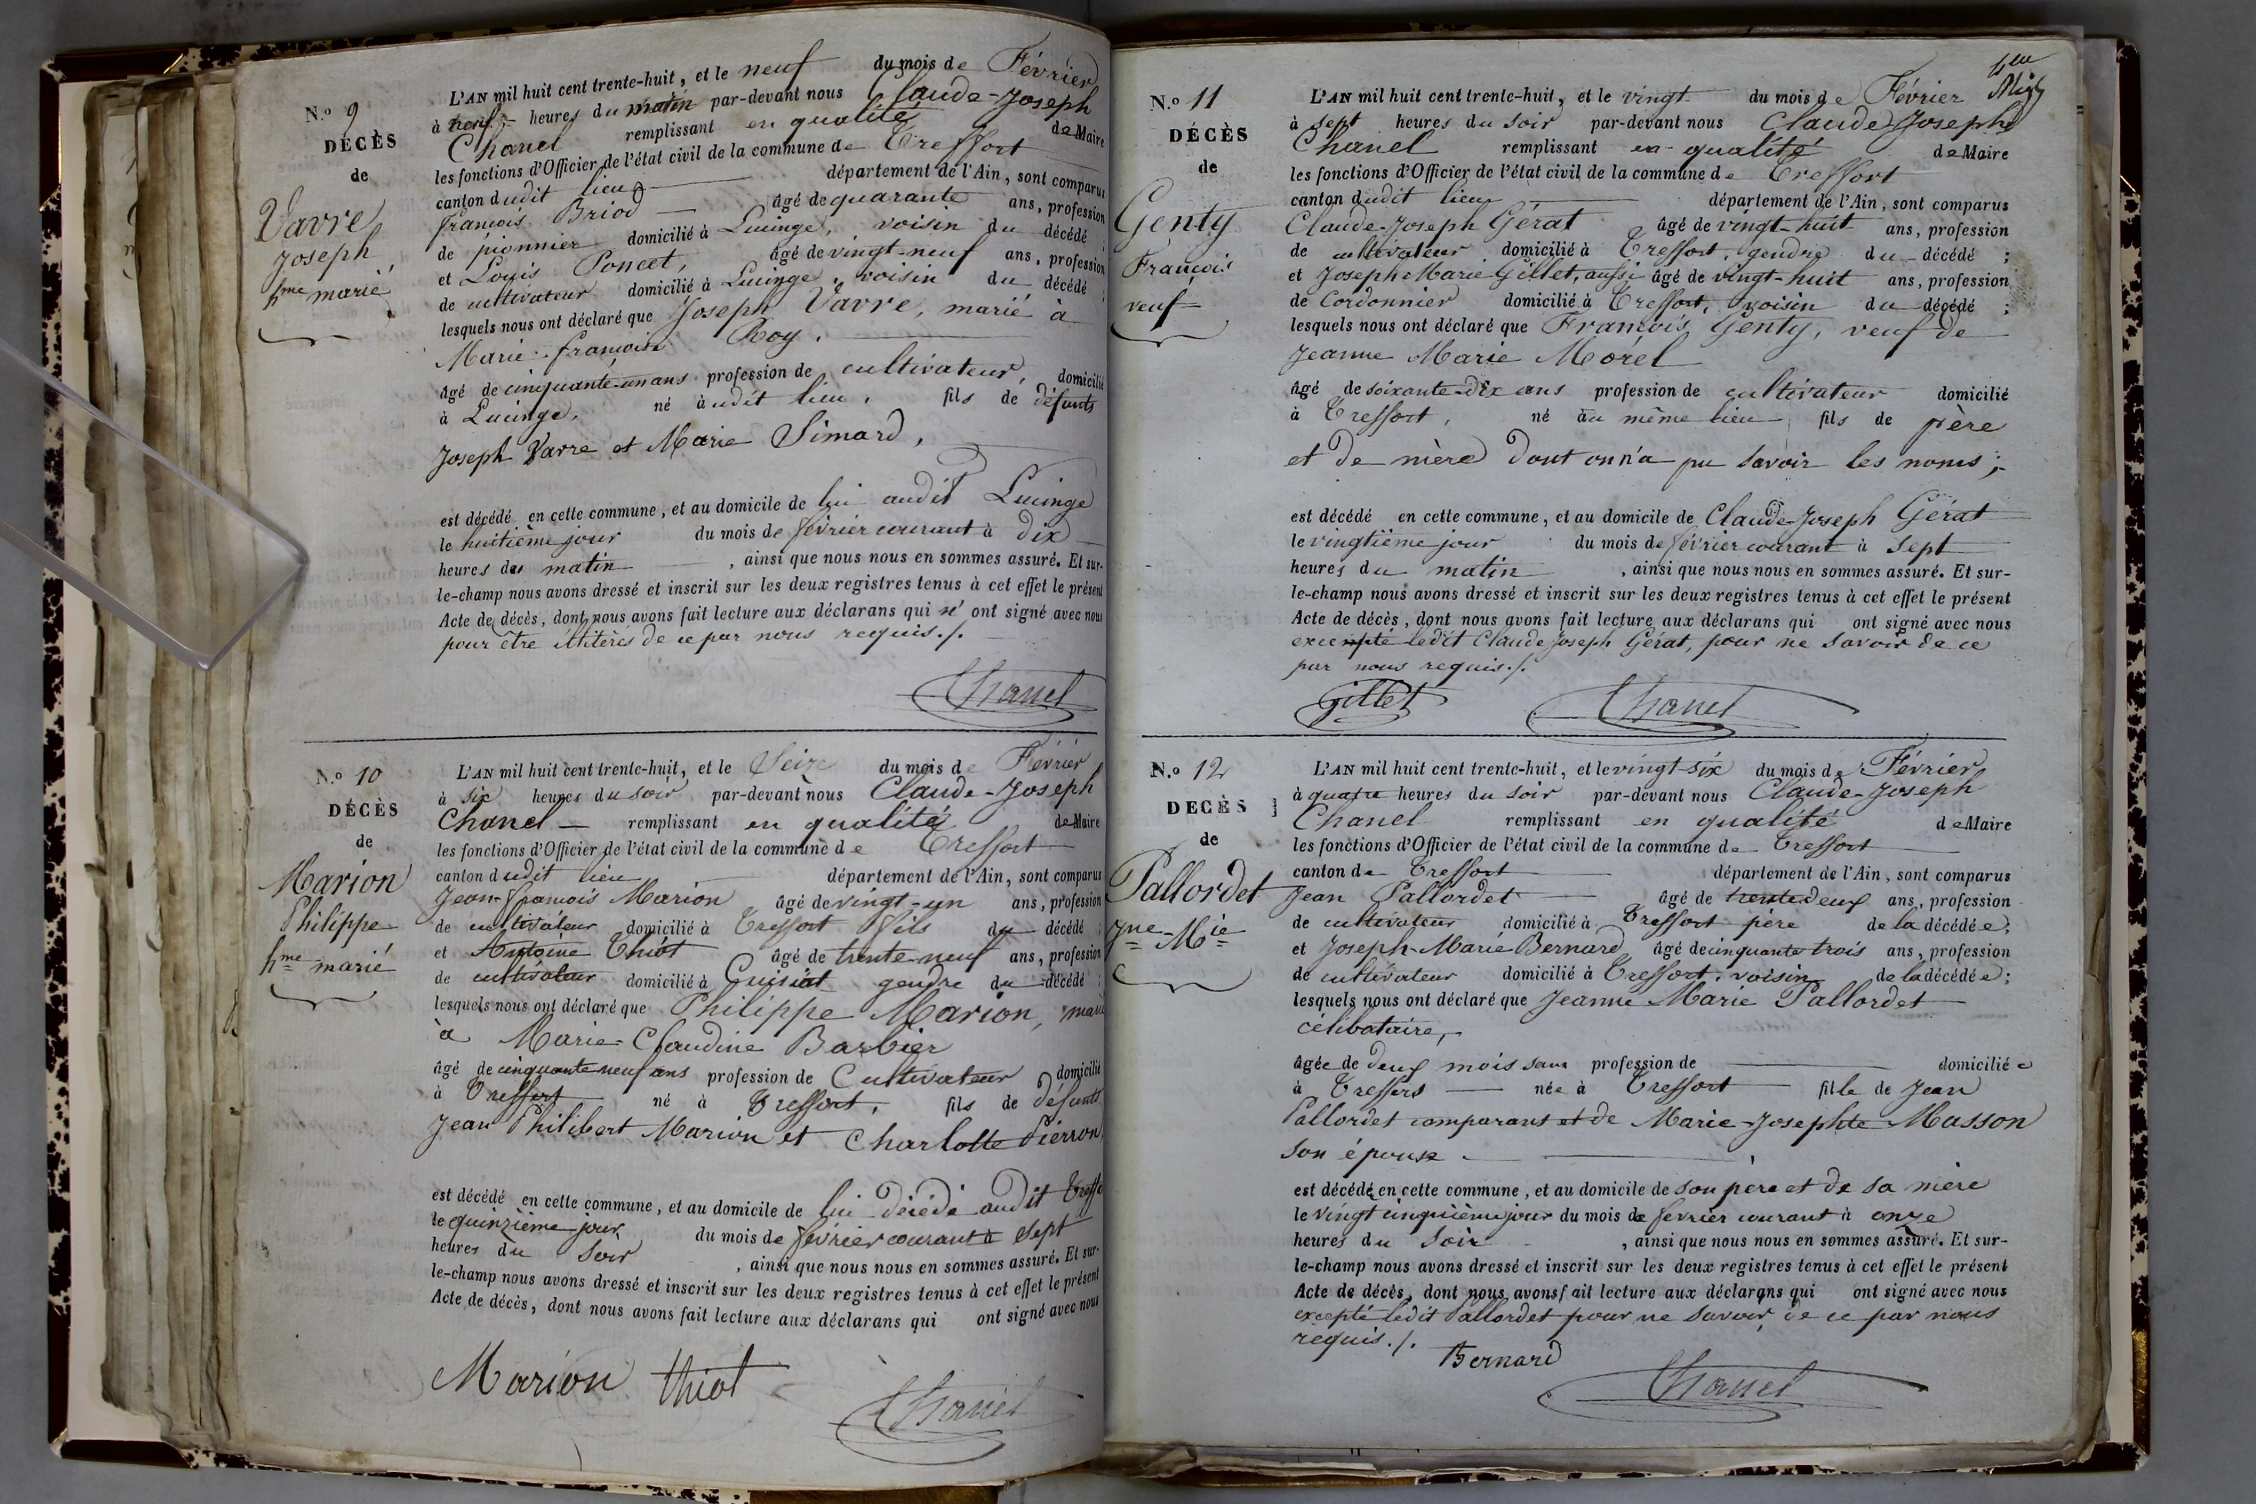 N.o 9
DÉCÈS
de
Vavre
Joseph
hme marié
L'AN mil huit cent trente-huit, et le neuf du mois de Février
à neuf heures du matin par-devant nous Claude-Joseph
Chanel remplissant en qualité de Maire
les fonctions d'Officier de l'état civil de la commune de Treffort
canton dudit lieu département de l'Ain, sont comparus
françois Briod âgé de quarante ans, profession
de pionnier domicilié à Lucinge, voisin du décédé ;
et Louis Poncet, âgé de vingt-neuf ans, profession
de cultivateur domicilié à Lucinge, voisin du décédé ;
lesquels nous ont déclaré que Joseph Vavre, marié à
Marie-françoise Roy.
âgé de cinquante-un ans profession de cultivateur, domicilié
à Lucinge, né àudit lieu, fils de défunts
Joseph Vavre et Marie Simard,
est décédé en cette commune, et au domicile de lui audit Lucinge
le huitième jour du mois de février courant à dix
heures du matin , ainsi que nous nous en sommes assuré. Et sur-
le-champ nous avons dressé et inscrit sur les deux registres tenus à cet effet le présent
Acte de décès, dont nous avons fait lecture aux déclarans qui n' ont signé avec nous
pour être illitérés de ce par nous requis./.
Chanel
N.o 10
DÉCÈS
de
Marion
Philippe
hme marié
L'AN mil huit cent trente-huit, et le Seize du mois de Février
à six heures du soir par-devant nous Claude-Joseph
Chanel remplissant en qualité de Maire
les fonctions d'Officier de l'état civil de la commune de Treffort
canton dudit lieu département de l'Ain, sont comparus
Jean-françois Marion âgé de vingt-un ans, profession
de cultivateur domicilié à Treffort fils du décédé ;
et Antoine Thiot âgé de trente neuf ans, profession
de cultivateur domicilié à Cuisiat gendre du décédé ;
lesquels nous ont déclaré que Philippe Marion, marié
à Marie-Claudine Barbier
âgé de cinquante neuf ans profession de Cultivateur domicilié
à Treffort né à Treffort, fils de défunts
Jean Philibert Marion et Charlotte Pierron
est décédé en cette commune, et au domicile de lui décédé audit Treffo
le quinzième jour du mois de février courant à sept
heures du soir , ainsi que nous nous en sommes assuré. Et sur-
le-champ nous avons dressé et inscrit sur les deux registres tenus à cet effet le présent
Acte de décès, dont nous avons fait lecture aux déclarans qui ont signé avec nous
Marion thiot
Chanel
N.o 11
DÉCÈS
de
Genty
François
veuf
L'AN mil huit cent trente-huit, et le vingt du mois de Février
à sept heures du soir par-devant nous Claude-Joseph
Chanel remplissant en qualité de Maire
les fonctions d'Officier de l'état civil de la commune de Treffort
canton dudit lieu département de l'Ain, sont comparus
Claude-Joseph Gérat âgé de vingt-huit ans, profession
de cultivateur domicilié à Treffort, gendre du décédé ;
et Joseph Marie Gillet, aussi âgé de vingt-huit ans, profession
de Cordonnier domicilié à Treffort, voisin du décédé ;
lesquels nous ont déclaré que François Genty, veuf de
Jeanne Marie Morel
âgé de soixante-dix ans profession de cultivateur domicilié
à Treffort, né au même lieu fils de père
et de mère dont on n'a pu savoir les noms;
est décédé en cette commune, et au domicile de Claude-Joseph Gérat
le vingtième jour du mois de février courant à sept
heures du matin , ainsi que nous nous en sommes assuré. Et sur-
le-champ nous avons dressé et inscrit sur les deux registres tenus à cet effet le présent
Acte de décès, dont nous avons fait lecture aux déclarans qui ont signé avec nous
excempté ledit Claude Joseph Gérat, pour ne savoir de ce
par nous requis./.
Gillet Chanel
N.o 12
DECÈS
de
Pallordet
Jne-Mie
L'AN mil huit cent trente-huit, et le vingt-six du mois de Février
à quatre heures du soir par-devant nous Claude-Joseph
Chanel remplissant en qualité de Maire
les fonctions d'Officier de l'état civil de la commune de Treffort
canton de Treffort département de l'Ain, sont comparus
Jean Pallordet âgé de trente deux ans, profession
de cultivateur domicilié à Treffort père de la décédée ;
et Joseph-Marie Bernard âgé de cinquante trois ans, profession
de cultivateur domicilié à Treffort, voisin de la décédée ;
lesquels nous ont déclaré que Jeanne Marie Pallordet
célibataire,
âgée de deux mois sans profession de domiciliée
à Treffort née à Treffort fille de Jean
Pallordet comparant et de Marie-Josephte Masson
son épouse
est décédé en cette commune, et au domicile de son père et de sa mère
le vingt cinquième jour du mois de février courant à onze
heures du soir , ainsi que nous nous en sommes assuré. Et sur-
le-champ nous avons dressé et inscrit sur les deux registres tenus à cet effet le présent
Acte de décès, dont nous avons fait lecture aux déclarans qui ont signé avec nous
excepté ledit Pallordet pour ne savoir de ce par nous
requis./.
Bernard
Chanel